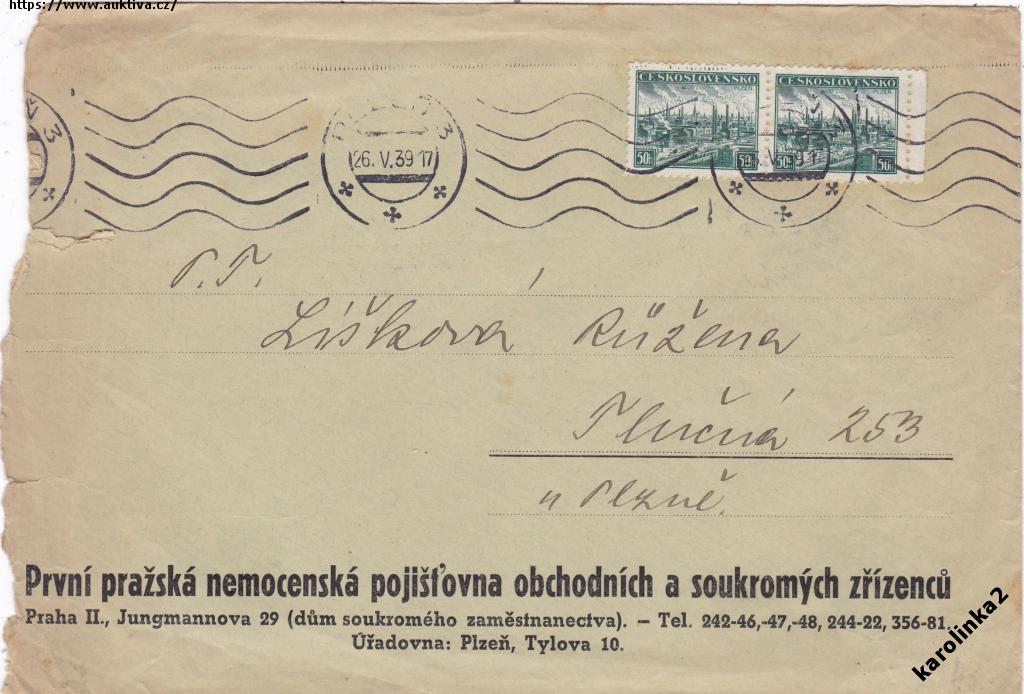 https://www.auktiva.cz/
ČESKOSLOVENSKO ČESKOSLOVENSKO
PLZEŇ PLZEŇ
50h 50h 50h 50h
3
3
26. V. 39 17
P. T.
Líšková Růžena
Tlučná 253
u Plzně.
První pražská nemocenská pojišťovna obchodních a soukromých zřízenců
Praha II., Jungmannova 29 (dům soukromého zaměstnanectva). – Tel. 242-46,-47,-48, 244-22, 356-81.
Úřadovna: Plzeň, Tylova 10.
karolinka2